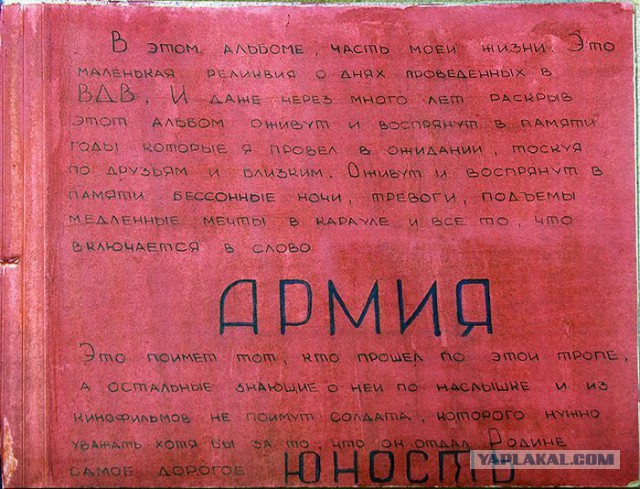 В ЭТОМ АЛЬБОМЕ, ЧАСТЬ МОЕЙ ЖИЗНИ. ЭТО
МАЛЕНЬКАЯ РЕЛИКВИЯ О ДНЯХ ПРОВЕДЕННЫХ В
ВДВ. И ДАЖЕ ЧЕРЕЗ МНОГО ЛЕТ РАСКРЫВ
ЭТОТ АЛЬБОМ ОЖИВУТ И ВОСПРЯНУТ В ПАМЯТИ
ГОДЫ КОТОРЫЕ Я ПРОВЕЛ В ОЖИДАНИИ, ТОСКУЯ
ПО ДРУЗЬЯМ И БЛИЗКИМ. ОЖИВУТ И ВОСПРЯНУТ В
ПАМЯТИ БЕССОННЫЕ НОЧИ, ТРЕВОГИ, ПОДЪЕМЫ
МЕДЛЕННЫЕ МЕЧТЫ В КАРАУЛЕ И ВСЕ ТО, ЧТО
ВКЛЮЧАЕТСЯ В СЛОВО
АРМИЯ
ЭТО ПОЙМЕТ ТОТ, КТО ПРОШЕЛ ПО ЭТОЙ ТРОПЕ,
А ОСТАЛЬНЫЕ ЗНАЮЩИЕ О НЕЙ ПО НАСЛЫШКЕ И ИЗ
КИНОФИЛЬМОВ НЕ ПОЙМУТ СОЛДАТА, КОТОРОГО НУЖНО
УВАЖАТЬ ХОТЯ БЫ ЗА ТО, ЧТО ОН ОТДАЛ РОДИНЕ
САМОЕ ДОРОГОЕ ЮНОСТЬ
YAPLAKAL.COM